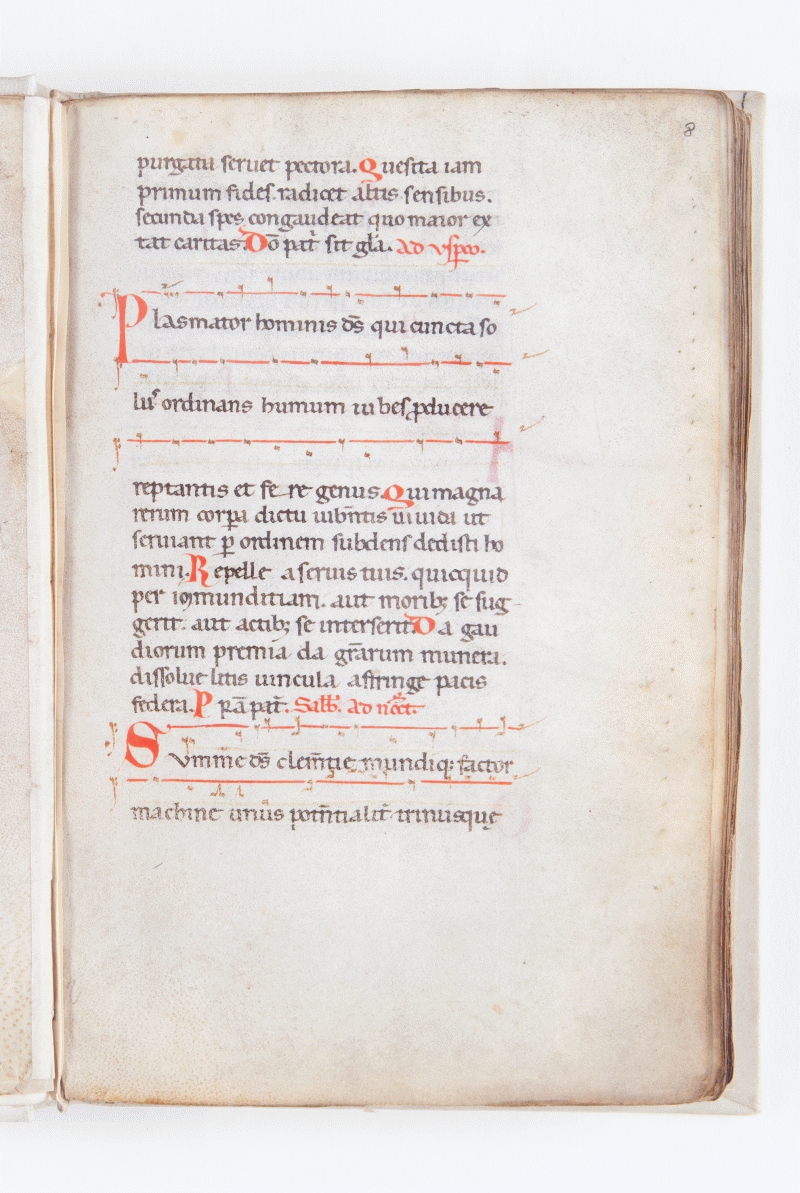 8
purgata seruet pectora. Quesita iam
primum fides radicet altis sensibus.
secunda spes congaudeat quo maior ex
tat caritas. Dō pat̄ sit gl̄a. Ad vesp̄o.
Plasmator hominis ds̄ qui cuncta so
lus ordinans humum iubes ꝓducere
reptantis et fe re genus. Qui magna
rerum corꝑa dictu iubn̄tis uiuida ut
seruiant ꝑ ordinem subdens dedisti ho
mini. Repelle a seruis tuis. quicquid
per inmunditiam. aut morib; se sug
gerit. aut actib; se interserit. Da gau
diorum premia da gr̄arum munera.
dissolue litis uincula astringe pacis
federa. P rā pat̄. Sabb̄. ad noc̄t.
Summe ds̄ clem̄tie mundiq; factor
machine unus potn̄tialit̄ trinusque